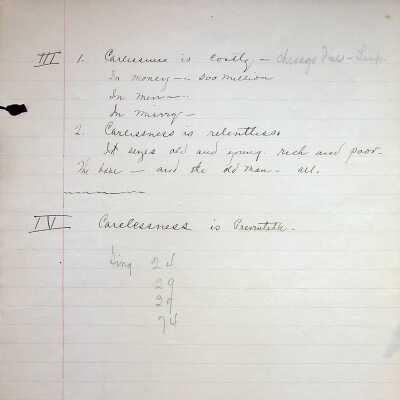 III 1. Carelessness is costly - Chicago Fires -
In money - 500 million
In men -
In misery -
2. Carelessness is relentless.
It seizes old and young rich and poor -
The babe - and the old man - all.
IV Carelessness is Preventable.
Sing 24
29
29
74